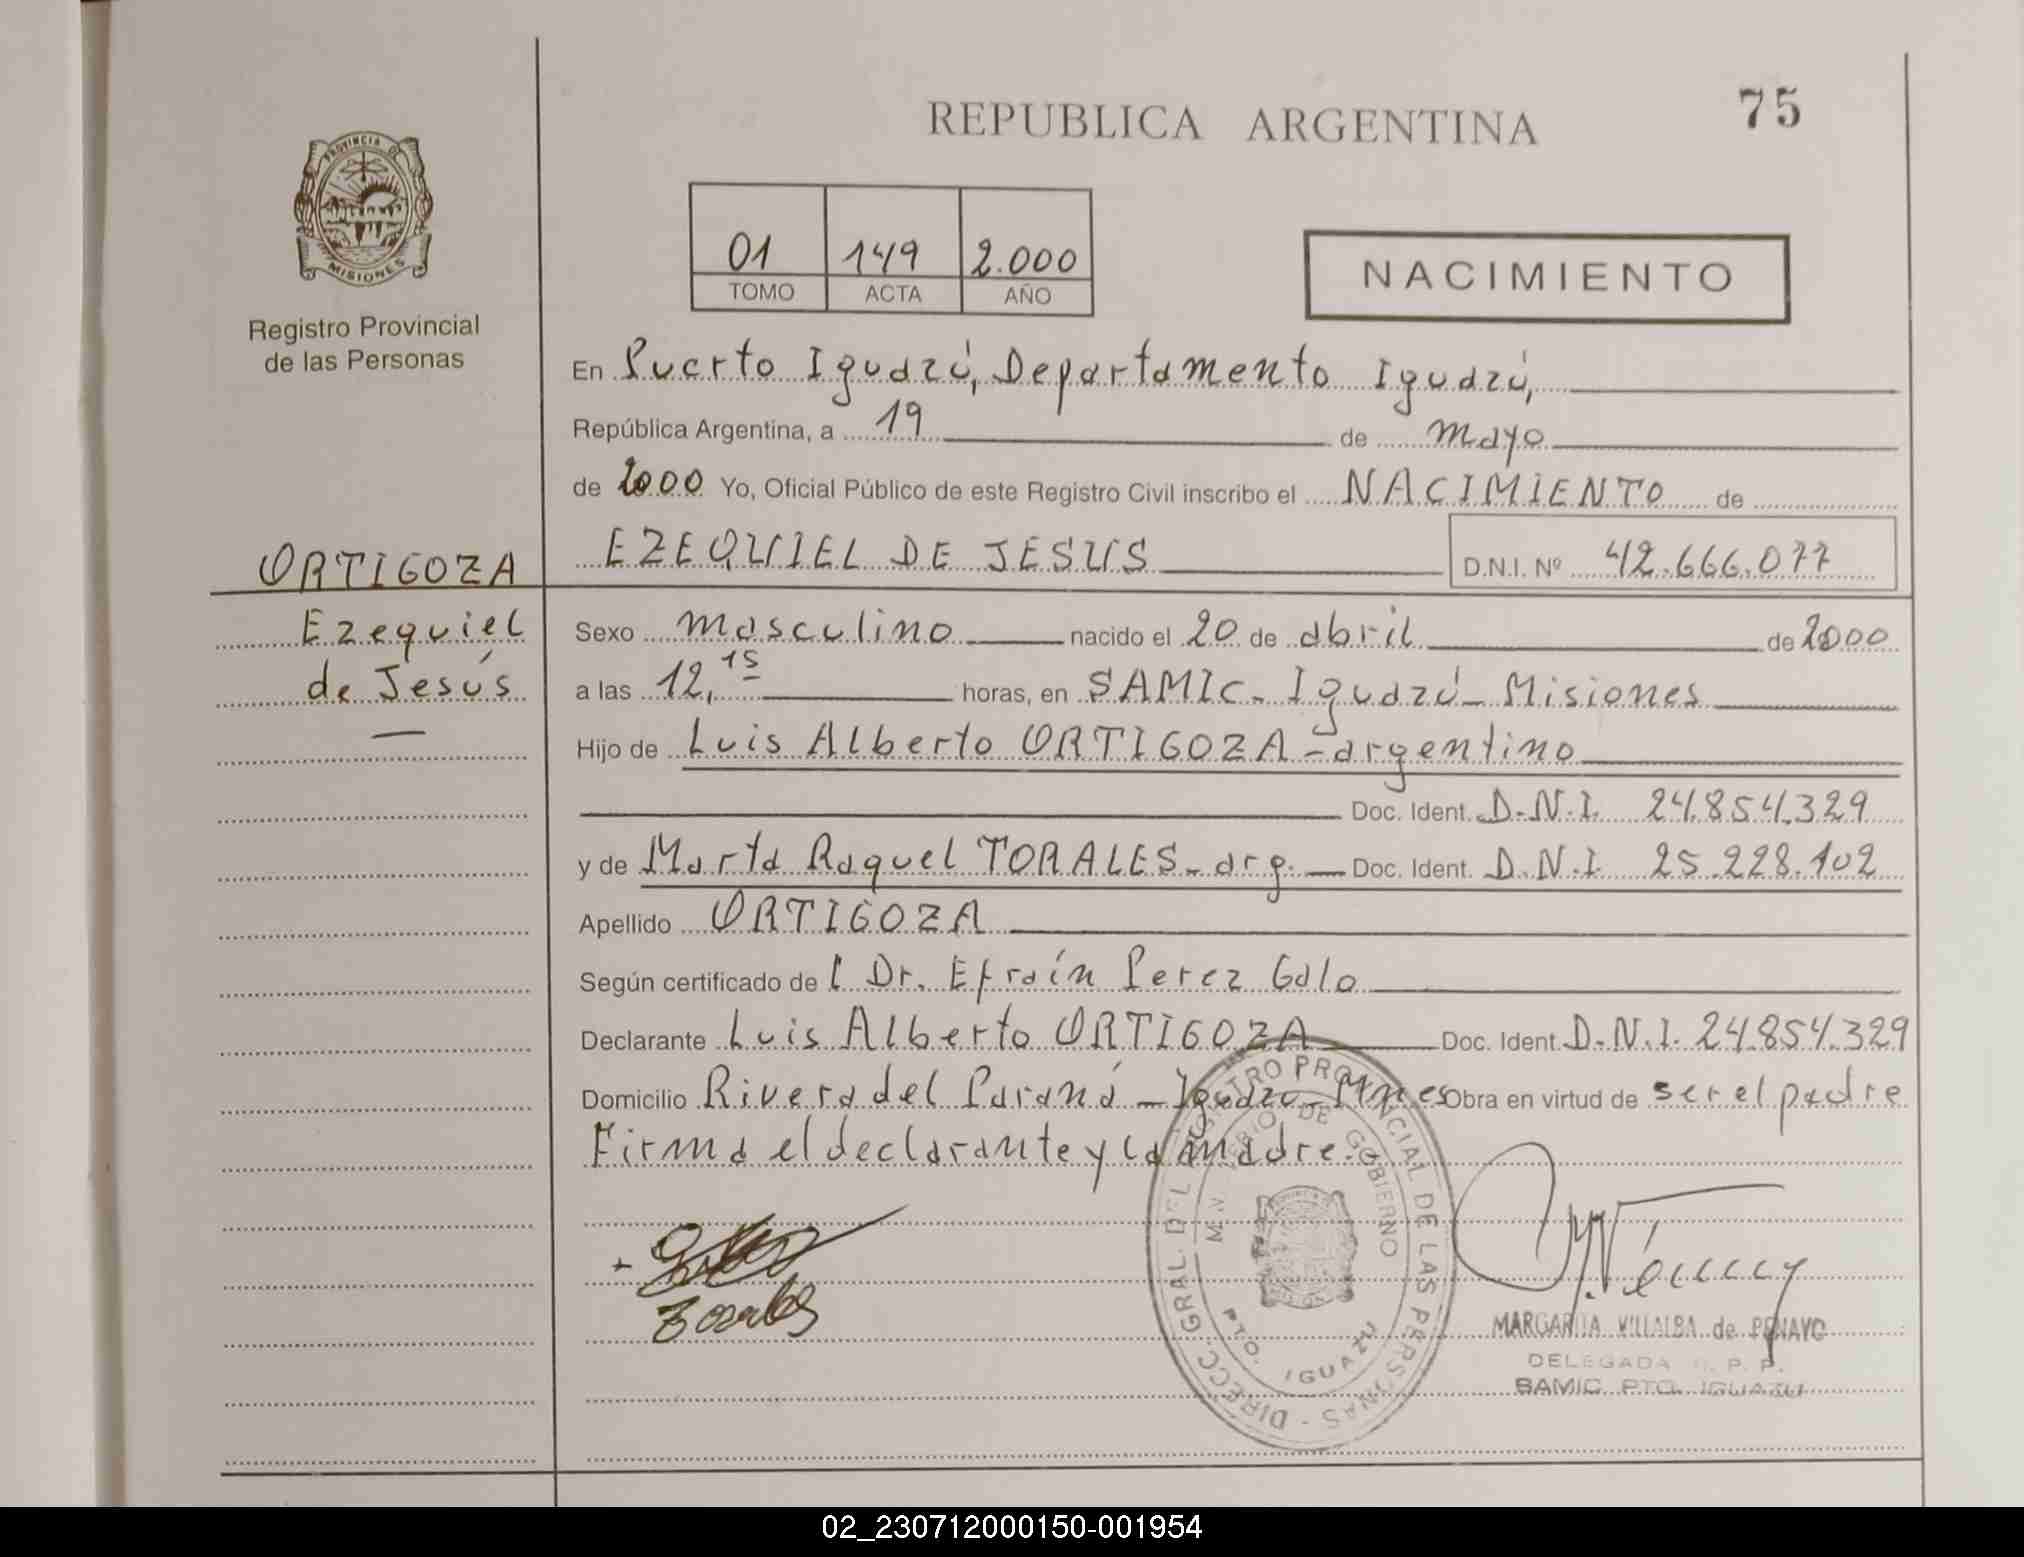 REPUBLICA ARGENTINA
75
PROVINCIA DE
MISIONES
Registro Provincial
de las Personas
01 149 2.000
TOMO ACTA AÑO
NACIMIENTO
En Puerto Iguazú, Departamento Iguazú,
República Argentina, a 19 de mayo
de 2000 Yo, Oficial Público de este Registro Civil inscribo el NACIMIENTO de
EZEQUIEL DE JESUS D.N.I. Nº 42.666.077
ORTIGOZA
Ezequiel
de Jesús
Sexo masculino nacido el 20 de abril de 2000
a las 12,15 horas, en SAMIC - Iguazú - Misiones
Hijo de Luis Alberto ORTIGOZA - argentino
Doc. Ident. D.N.I. 24.854.329
y de Marta Raquel TORALES - arg. Doc. Ident. D.N.I. 25.228.102
Apellido ORTIGOZA
Según certificado de l Dr. Efraín Perez Galo
Declarante Luis Alberto ORTIGOZA Doc. Ident. D.N.I. 24.854.329
Domicilio Rivera del Paraná - Iguazú - Mnes Obra en virtud de ser el padre
Firma el declarante y la madre.-
DIRECC. GRAL. DEL REGISTRO PROVINCIAL DE LAS PERSONAS -
MINISTERIO DE GOBIERNO
PTO. IGUAZU
MARGARITA VILLALBA de PENAYO
DELEGADA R. P. P.
SAMIC PTO. IGUAZU
02_230712000150-001954